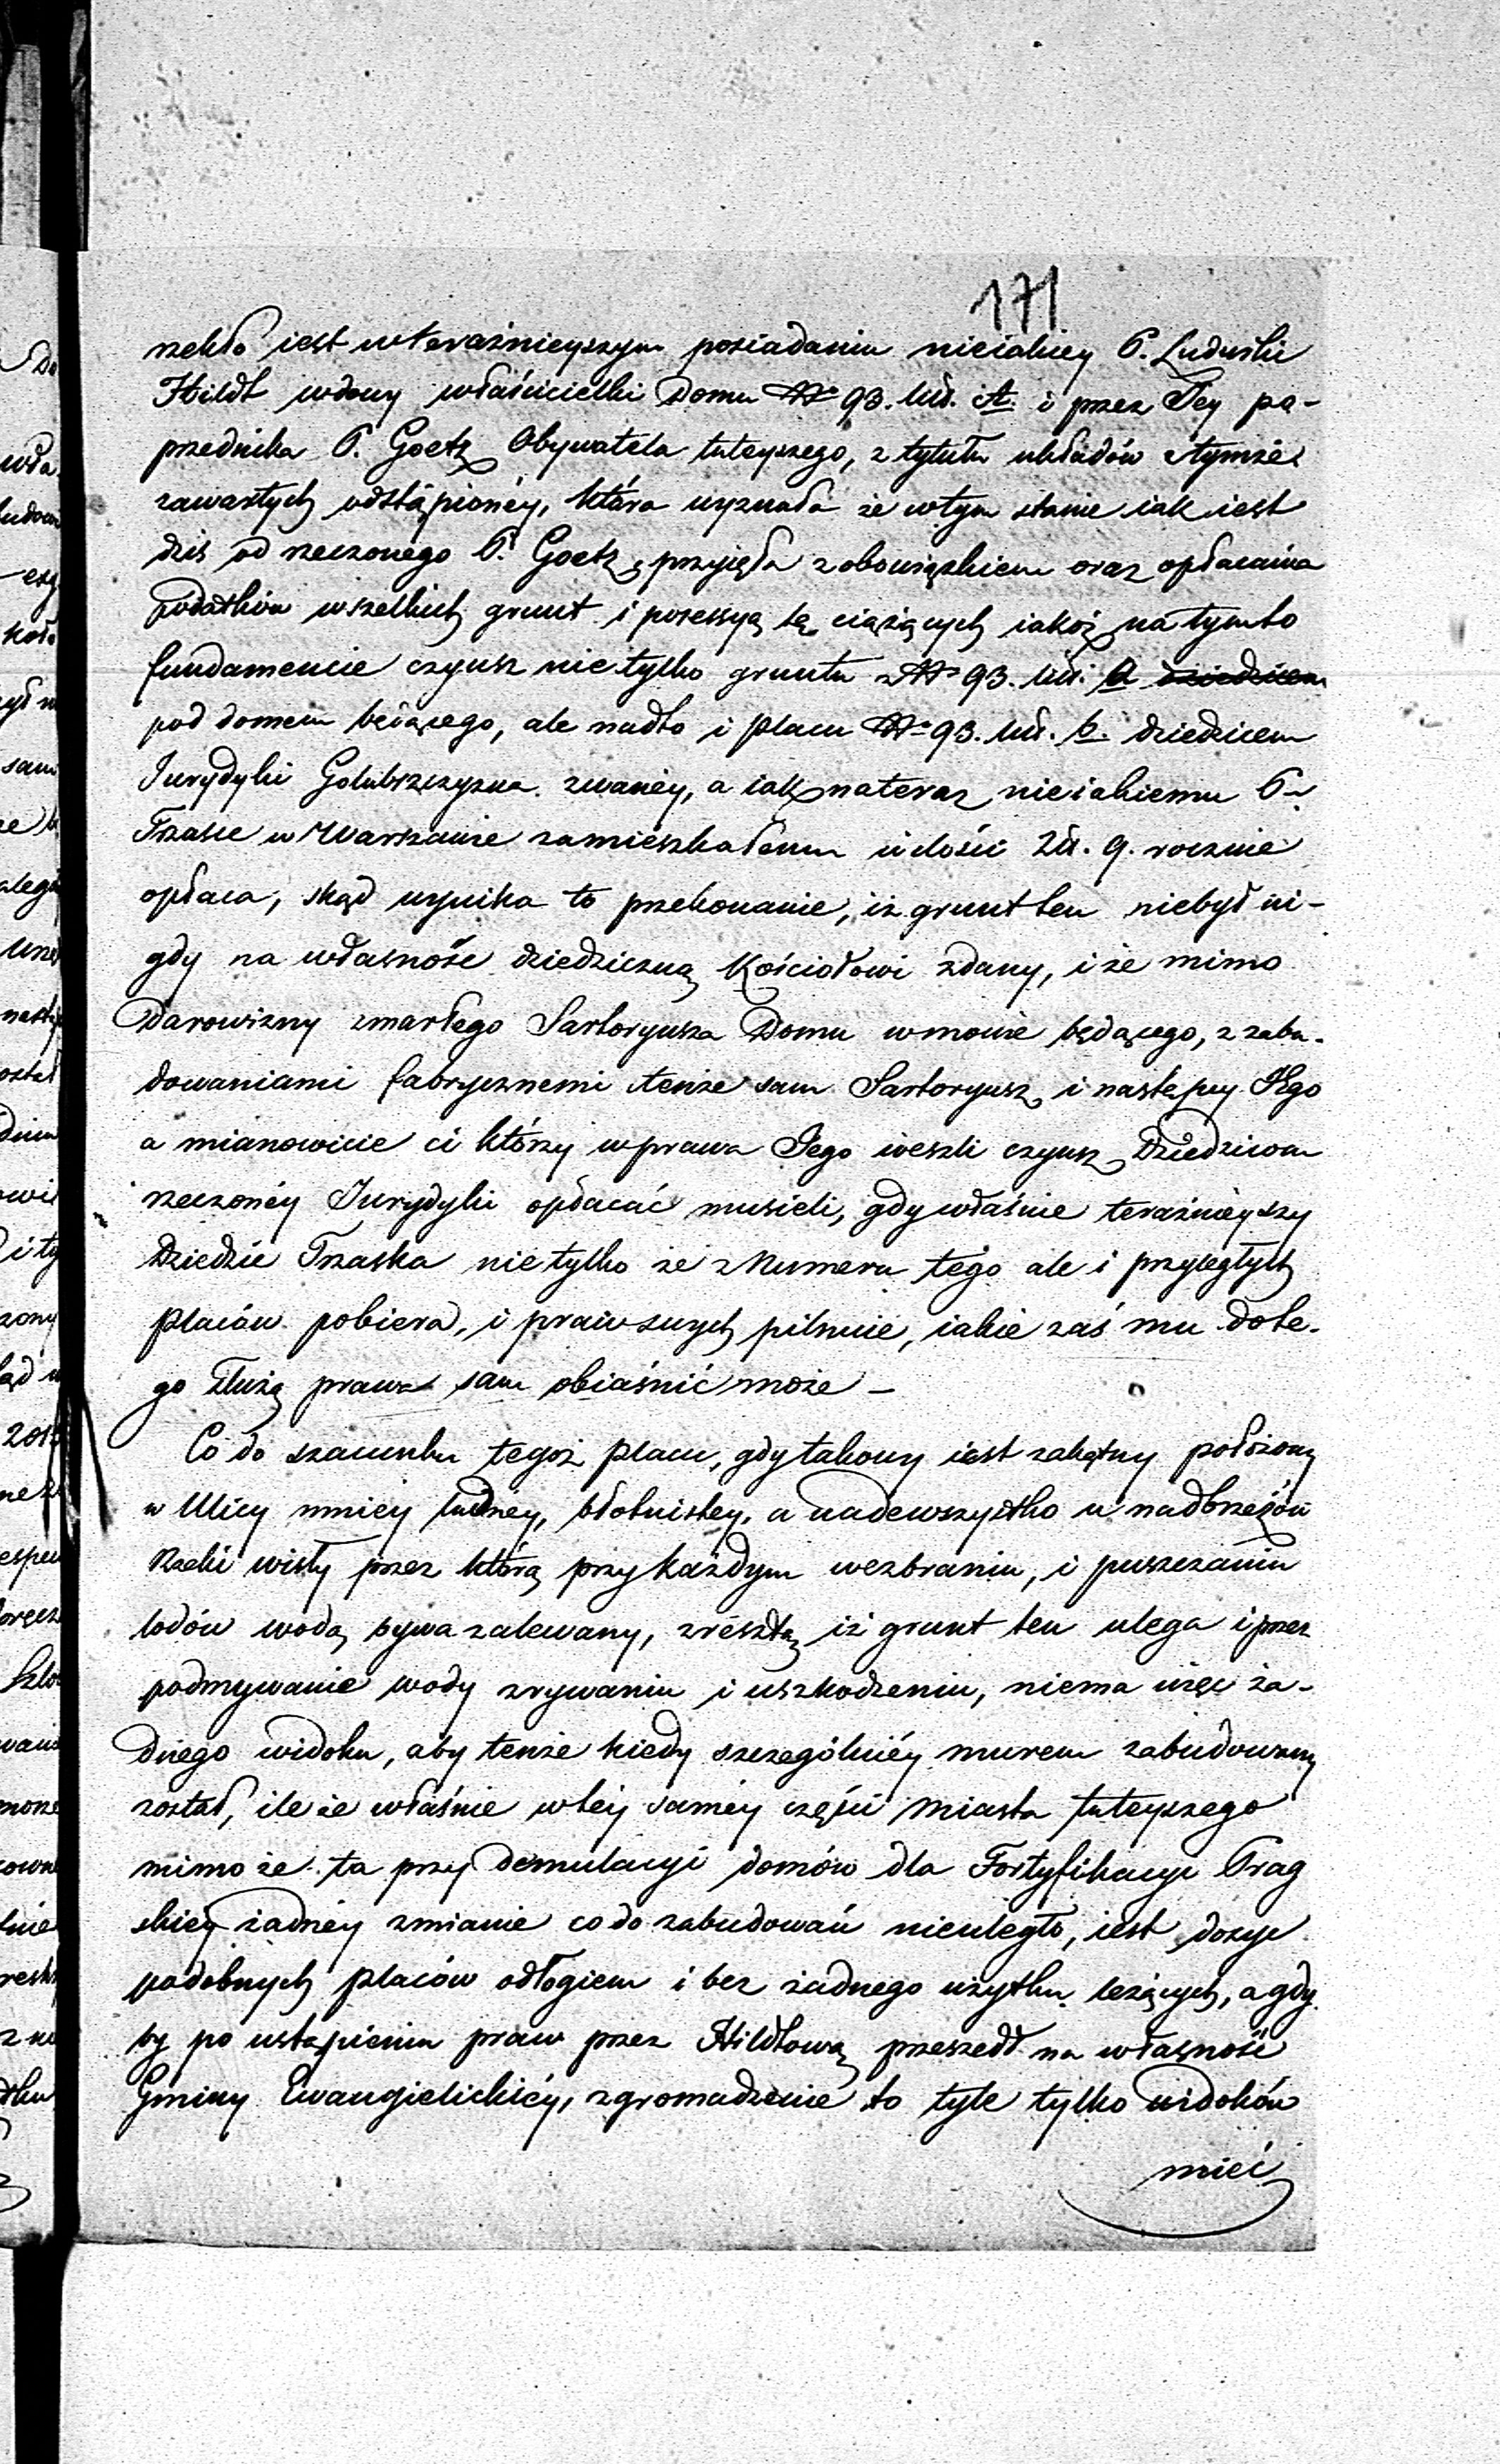 171
rzekło iest w teraźnieyszym posiadaniu nieiakiey P. Ludwiki
Hildt wdowy właścicielki Domu No 93. lit. A. i przez Jey po-
przednika P. Goetz Obywatela tuteyszego, z tytułu układów z tymże
zawartych odstąpionéy, która wyznała że w tym stanie iak iest
dziś od rzeczonego P. Goetz przyięła z obowiązkiem oraz opłacania
podatków wszelkich grunt i possessyą tę ciążących iakoż na tymto
fundamencie czynsz nie tylko gruntu No 93. lit. a dziedzicem
pod domem będącego, ale nadto i placu No 93. lit. b. dziedzicem
Jurydyki Golubszczyzna zwanéy, a iak na teraz nieiakiemu P.
Trasce w Warszawie zamieszkałemu w ilości Zł. 9. rocznie
opłaca, skąd wynika to przekonanie, iż grunt ten niebył ni-
gdy na własność dziedziczną Kościołowi zdany, i że mimo
Darowizny zmarłego Sartoryusza Domu w mowie będącego, z zabu-
dowaniami fabrycznemi tenże sam Sartoryusz i następcy Jego
a mianowicie ci którzy w prawa Jego weszli czynsz Dziedzicom
rzeczonéy Jurydyki opłacać musieli, gdy właśnie teraźnieyszy
Dziedzic Traska nie tylko że z Numeru tego ale i przyległych
placów pobiera, i praw swych pilnuie, iakie zaś mu do te-
go służą prawa sam obiaśnić może —
Co do szacunku tegoż placu, gdy takowy iest zakątny położony
w Ulicy mniey ludney, błotnistey, a nadewszystko u nadbrzeżów
Rzeki Wisły przez którą przy każdym wezbraniu, i puszczaniu
lodów wodą bywa zalewany, zresztą iż grunt ten ulega i przez
podmywanie wody zrywaniu i uszkodzeniu, niema więc ża-
dnego widoku, aby tenże kiedy szczególniéy murem zabudowany
został, ile że właśnie w téy saméy części miasta tuteyszego
mimo że ta przy Demulacyi domów dla Fortyfikacyi Prag
skiey żadnéy zmianie co do zabudowań nieuległo, iest dosyć
podobnych placów odłogiem i bez żadnego użytku leżących, a gdy
by po ustąpieniu praw przez Hildtową przeszedł na własność
Gminy Ewangielickiéy, zgromadzenie to tyle tylko widoków
mieć